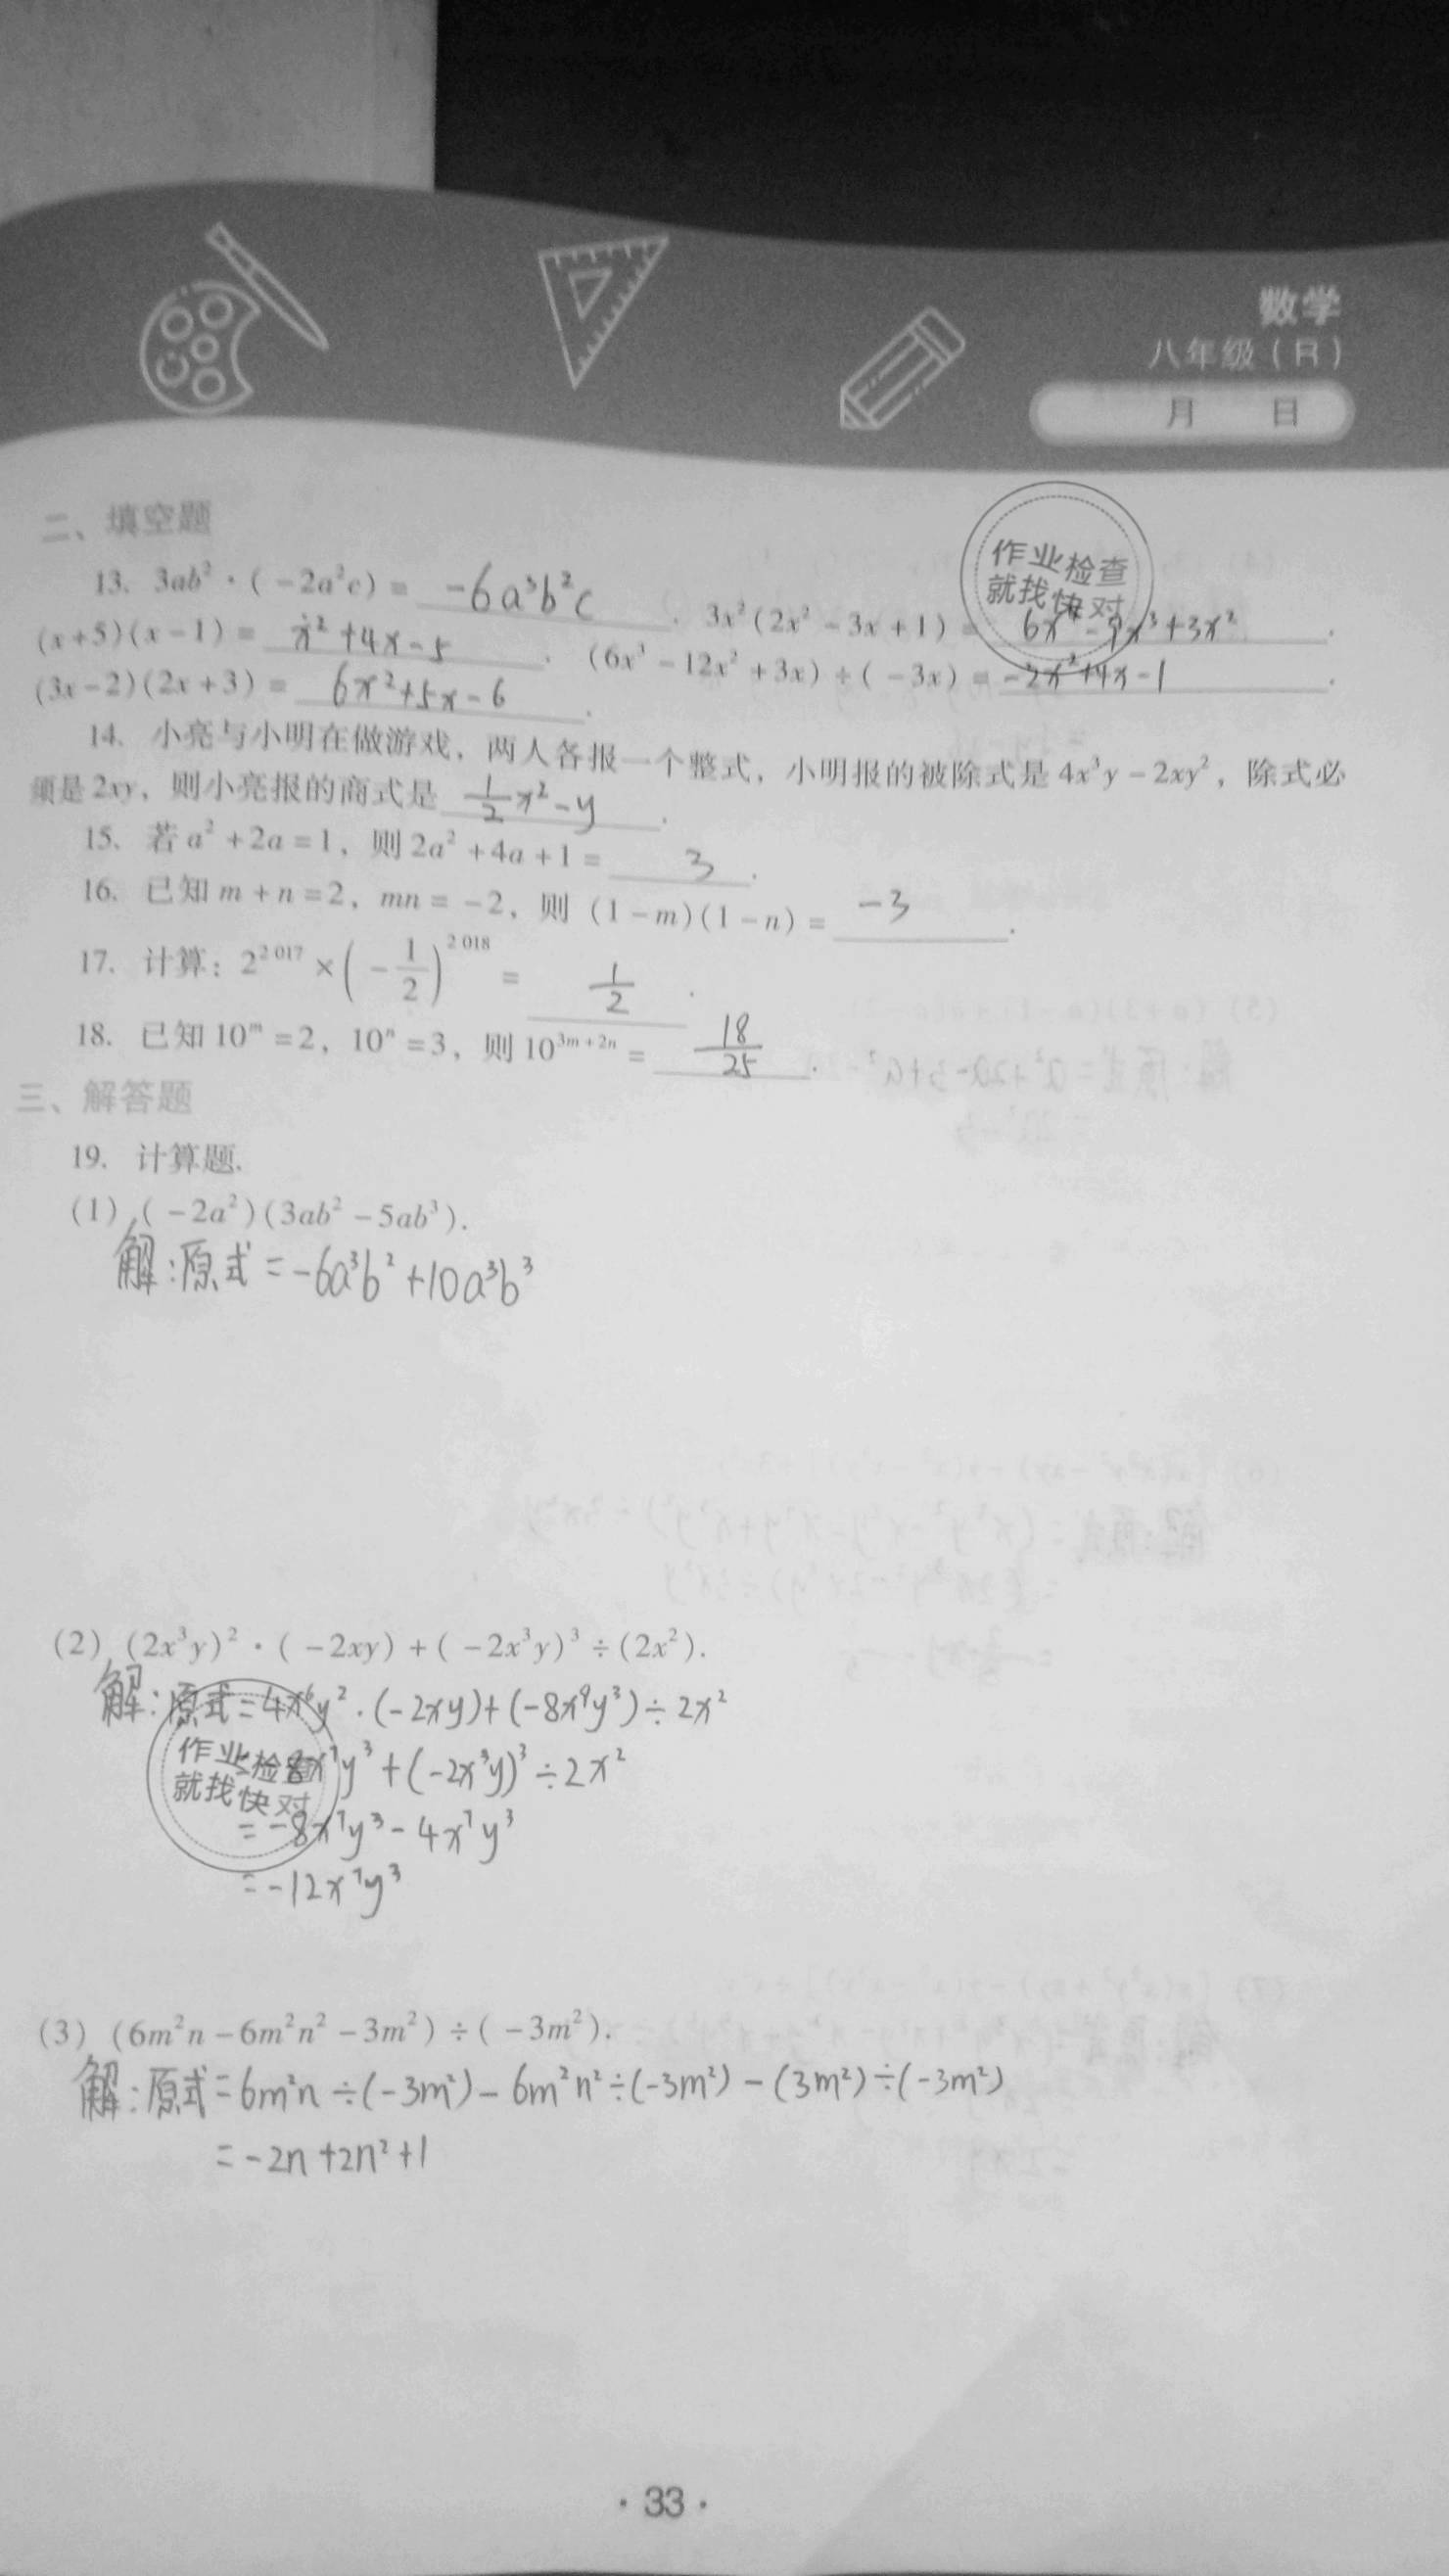 数学
八年级（R）
月 日
二、填空题
13. 3ab²·(-2a²c) = -6a³b²c . 3x²(2x² - 3x + 1) = 6x⁴ - 9x³ + 3x² .
(x+5)(x-1) = x² + 4x - 5 . (6x³ - 12x² + 3x) ÷ (-3x) = -2x² + 4x - 1 .
(3x-2)(2x+3) = 6x² + 5x - 6 .
14. 小亮与小明在做游戏，两人各报一个整式，小明报的被除式是 4x³y - 2xy²，除式必
须是 2xy，则小亮报的商式是 1/2 x² - y .
15. 若 a² + 2a = 1，则 2a² + 4a + 1 = 3 .
16. 已知 m + n = 2，mn = -2，则 (1-m)(1-n) = -3 .
17. 计算：2^2017 × (-1/2)^2018 = 1/2 .
18. 已知 10^m = 2，10^n = 3，则 10^(3m+2n) = 18/25 .
三、解答题
19. 计算题.
(1) (-2a²)(3ab² - 5ab³).
解：原式 = -6a³b² + 10a³b³
(2) (2x³y)²·(-2xy) + (-2x³y)³ ÷ (2x²).
解：原式 = 4x⁶y²·(-2xy) + (-8x⁹y³) ÷ 2x²
= -8x⁷y³ + (-2x³y)³ ÷ 2x²
= -8x⁷y³ - 4x⁷y³
= -12x⁷y³
(3) (6m²n - 6m²n² - 3m²) ÷ (-3m²).
解：原式 = 6m²n ÷ (-3m²) - 6m²n² ÷ (-3m²) - (3m²) ÷ (-3m²)
= -2n + 2n² + 1
·33·
作业检查
就找快对
作业检查
就找快对